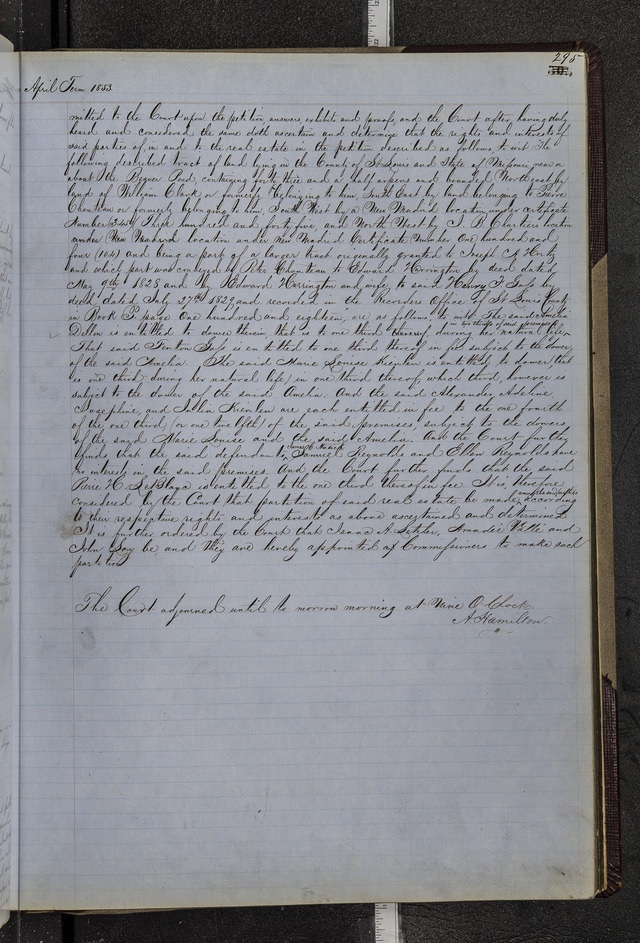 295
April Term 1853
mitted to the Court upon the petition, answers, exhibits and proofs, and the Court after having duly
heard and considered the same doth ascertain and determine that the rights and interests of
said parties of in and to the real estate in the petition described as follows, to wit: The
following described tract of land lying in the County of St Louis and State of Missouri, near or
about the Beaver Pond, containing forty three and a half arpens and bounded North east by
lands of William Clark, or formerly belonging to him, South East by land belonging to Pierre
Chouteau or formerly belonging to him, South West by a New Madrid location under certificate
Number 345 Three hundred and forty five, and North West by J. B. Charliers location
under New Madrid location under New Madrid Certificate Number One hundred and
four (104) and being a part of a larger tract originally granted to Joseph A Hortiz
and which part was conveyed by Peter Chouteau to Edward Horrington by deed dated
May 9th 1828 and by Edward Harrington and wife to said Henry T
deed dated July 27th 1829 and recorded in the Recorders Office of St Louis County
in Book P. page One hundred and eighteen, are as follows, to wit: The said Amelia
in two thirds of said premises
Dillon is entitled to dower therein, that is to one third thereof during her natural life.
That said is entitled to one third thereof in fee subject to the dower
of the said Amelia. The said Marie Louise Kienlen is entitled to dower, (that
is one third during her natural life) in one third thereof, which third, however is
subject to the dower of the said Amelia. And the said Alexander, Adeline,
Josephine, and Julia Kienlen are each entitled in fee to the one fourth
of the one third, (or one twelfth) of the said premises, subject to the dowers
of the said Marie Louise and the said Amelia. And the Court further
finds that the said defendants, Samuel Reynolds and Ellen Reynolds have
no interest in the said premises. And the Court further finds that the said
is entitled to the one third thereof in fee. It is therefore
considered by the Court that partition of said real estate be made according
to their respective rights and interests as above ascertained and determined.
It is further ordered by the Court that Isaac A. Letcher, Amadee Valle and
John be and they are hereby appointed as Commissioners to make such
partition
The Court adjourned until to morrow morning at Nine O Clock.
A Hamilton